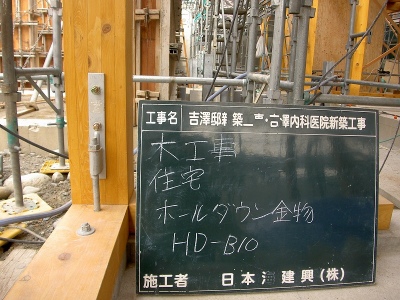 工事名 吉澤邸新築工事・吉澤内科医院新築工事
木工事
住宅
ホールダウン金物
HD-B10
施工者 日本 建興(株)